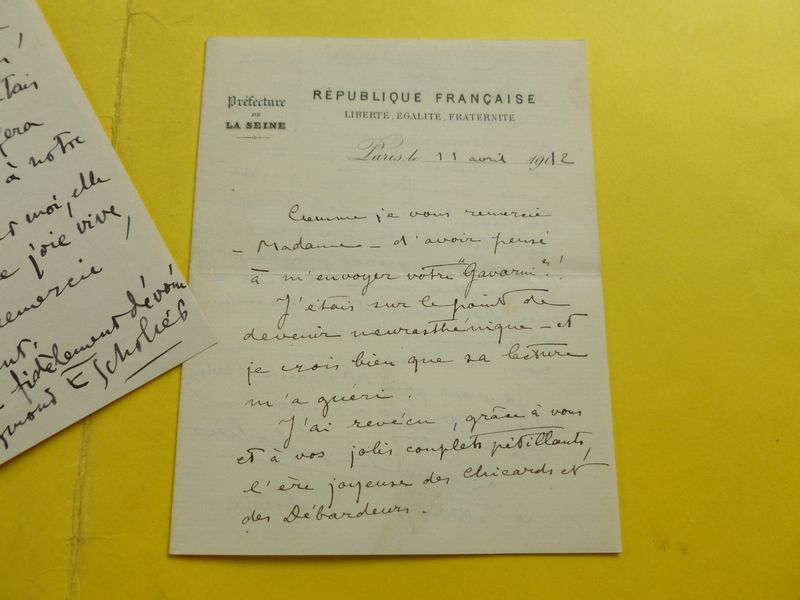 !
à notre
moi, elle
joie vive,
remercie
fidèlement dévoué
Escholier
Préfecture
DE
LA SEINE
RÉPUBLIQUE FRANÇAISE
LIBERTÉ, ÉGALITÉ, FRATERNITÉ
Paris, le 11 avril 1912
Comme je vous remercie
- Madame - d'avoir pensé
à m'envoyer votre "Gavarni"!
J'étais sur le point de
devenir neurasthénique - et
je crois bien que sa lecture
m'a guéri.
J'ai revécu, grâce à vous
et à vos jolis couplets pétillants,
l'ère joyeuse des Chicards et
des Débardeurs.